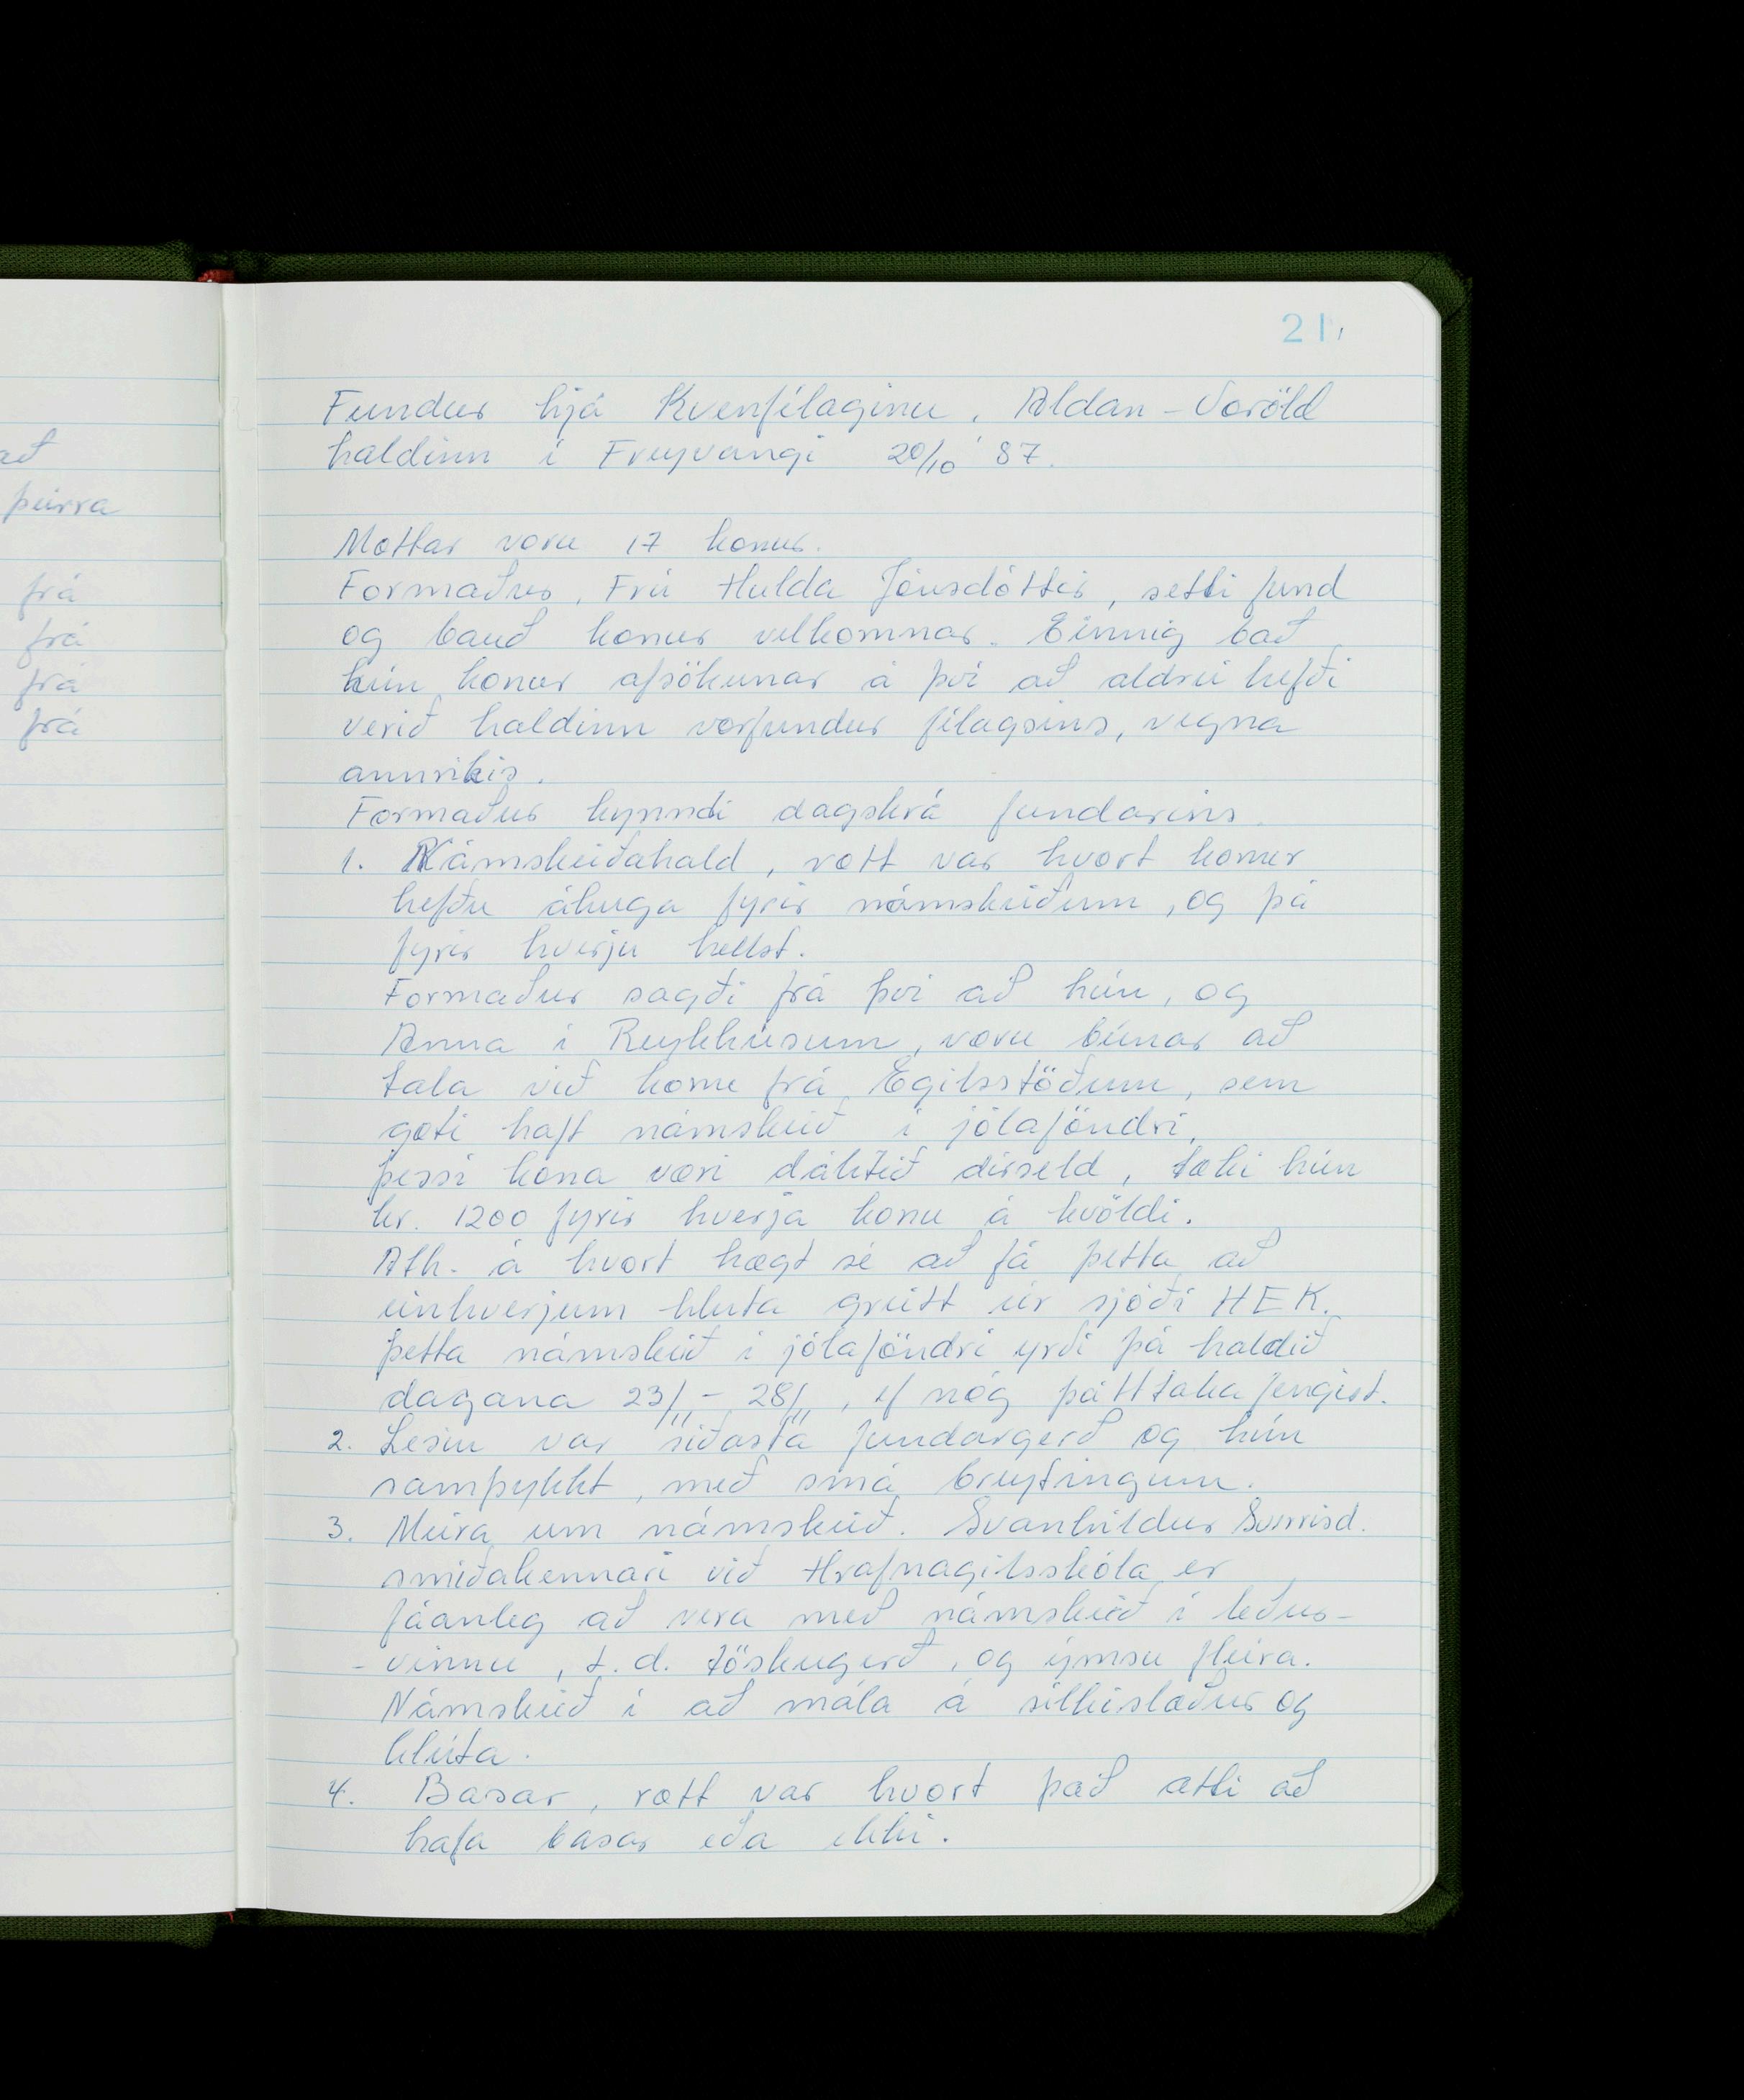 að
þeirra
frá
frá
frá
frá
21
Fundur hjá Kvenfélaginu, Aldan - Voröld
haldinn í Freyvangi 20/10 '87.
Mættar voru 17 konur.
Formaður, Frú Hulda Jónsdóttir, setti fund
og bauð konur velkomnar. Einnig bað
hún konur afsökunar á því að aldrei hefði
verið haldinn vorfundur félagsins, vegna
annríkis.
Formaður kynnti dagskrá fundarins.
1. Námskeiðahald, rætt var hvort konur
hefðu áhuga fyrir námskeiðum, og þá
fyrir hverju hellst.
Formaður sagði frá því að hún, og
Anna í Reykhúsum, voru búnar að
tala við konu frá Egilsstöðum, sem
gæti haft námskeið í jólaföndri,
þessi kona væri dálítið dírseld, tæki hún
kr. 1200 fyrir hverja konu á kvöldi.
Ath. á hvort hægt sé að fá þetta að
einhverjum hluta greitt úr sjóði HEK.
Þetta námskeið í jólaföndri yrði þá haldið
dagana 23/11 - 28/11, ef nóg þátttaka fengist.
2. Lesin var síðasta fundargerð og hún
samþykkt, með smá breytingum.
3. Meira um námskeið. Svanhildur Sverrisd.
smíðakennari við Hrafnagilsskóla er
fáanleg að vera með námskeið í leður-
- vinnu, t.d. töskugerð, og ýmsu fleira.
Námskeið í að mála á silkislæður og
klúta.
4. Basar, rætt var hvort það ætti að
hafa basar eða ekki.